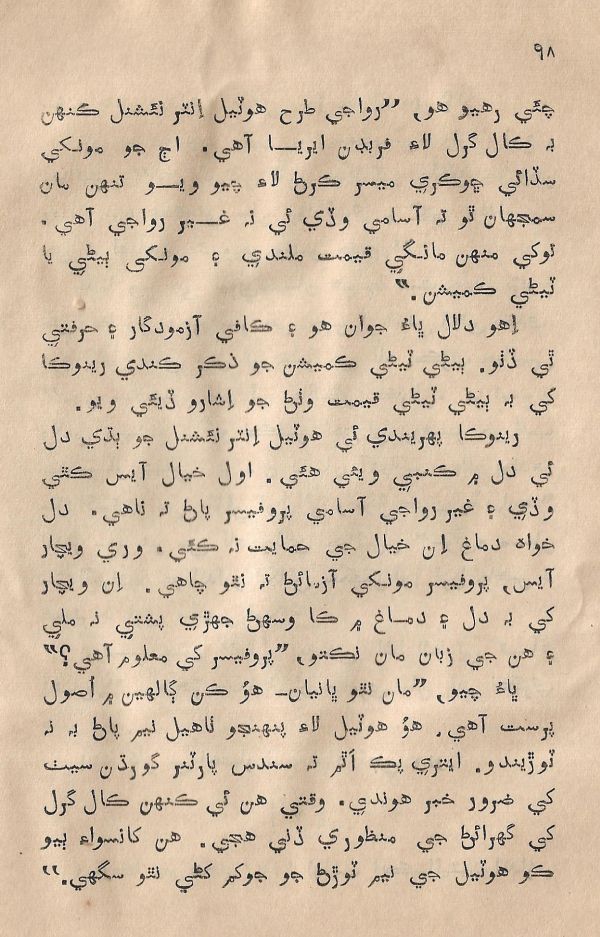 ٩٨
چئي رهيو هو، ”رواجي طرح هوٽيل اِنٽر نئشنل ڪنهن
بہ ڪال گرل لاءِ فربڊن ايريـــا آهي. اڄ جو مونکي
سڏائي ڇوڪري ميسر ڪرڻ لاءِ چيو ويـــو تنهن مان
سمجهان ٿو تہ آسامي وڏي ئي نہ غـــير رواجي آهي.
توکي منهن مانگي قيمت ملندي ۽ مونکي ٻيڻي يا
ٽيڻي ڪميشن.“
اِهو دلال ڀاءُ جوان هو ۽ ڪافي آزمودگار ۽ حرفتي
ٿي ڏٺو. ٻيڻي ٽيڻي ڪميشن جو ذڪر ڪندي رينوڪا
کي بہ ٻيڻي ٽيڻي قيمت وٺڻ جو اِشارو ڏيئي ويو.
رينوڪا پهريندي ئي هوٽيل اِنٽر نئشنل جو ٻڌي دل
ئي دل ۾ ڪنبي ويئي هئي. اول خيال آيس ڪٿي
وڏي ۽ غير رواجي آسامي پروفيسر پاڻ تہ ناهي. دل
خواہ دماغ اِن خيال جي حمايت نہ ڪئي. وري ويچار
آيس، پروفيسر مونکي آزمائڻ تہ نٿو چاهي. اِن ويچار
کي بہ دل ۽ دمـــاغ ۾ ڪا وسهڻ جهڙي پشتي نہ ملي
۽ هن جي زبان مان نڪتو، ”پروفيسر کي معلوم آهي؟“
ڀاءُ چيو، ”مان نٿو ڀانيان– هوُ ڪن ڳالهين ۾ اُصول
پرست آهي. هوُ هوٽيل لاءِ پنهنجو ٺاهيل نيم پاڻ بہ نہ
ٽوڙيندو. ايتري پڪ اٿم تہ سندس پارٽنر گورڌن سيٺ
کي ضرور خبر هوندي. وقتي هن ئي ڪنهن ڪال گرل
کي گهرائڻ جي منظوري ڏني هجي. هن کانسواءِ ٻيو
ڪو هوٽيل جي نيم ٽوڙڻ جو جوکم کڻي نٿو سگهي.“